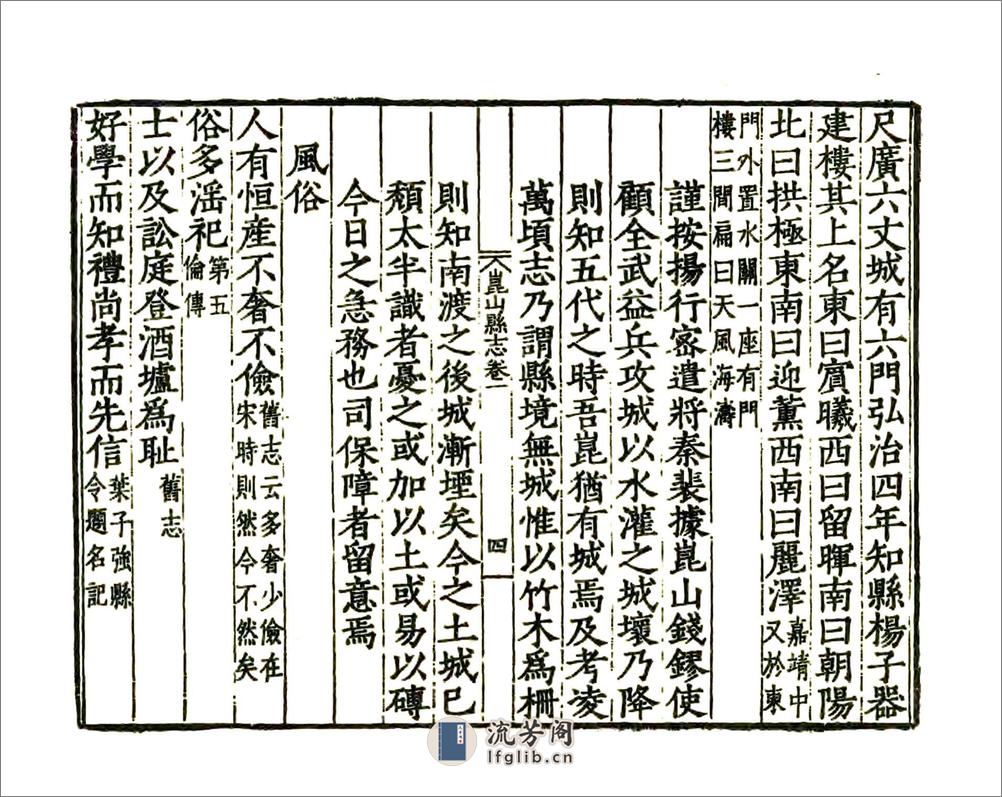 尺廣六丈城有六門弘治四年知縣楊子器
建樓其上名東曰賓曦西曰留暉南曰朝陽
北曰拱極東南曰迎薰西南曰麗澤嘉靖中又於東
門外置水關一座有門樓三間扁曰天風海濤
謹按揚行宻遣將秦裴據崑山錢鏐使
顧全武益兵攻城以水灌之城壞乃降
則知五代之時吾崑猶有城焉及考凌
萬頃志乃謂縣境無城惟以竹木爲柵
崑山縣志卷一
四
則知南渡之後城漸堙矣今之土城已
頹太半識者憂之或加以土或易以磚
今日之急務也司保障者留意焉
風俗
人有恒産不奢不儉舊志云多奢少儉在宋時則然今不然矣
俗多滛祀第五倫傳
士以及訟庭登酒壚爲恥舊志
好學而知禮尚孝而先信葉子強縣令題名記
流芳阁
lfglib.cn